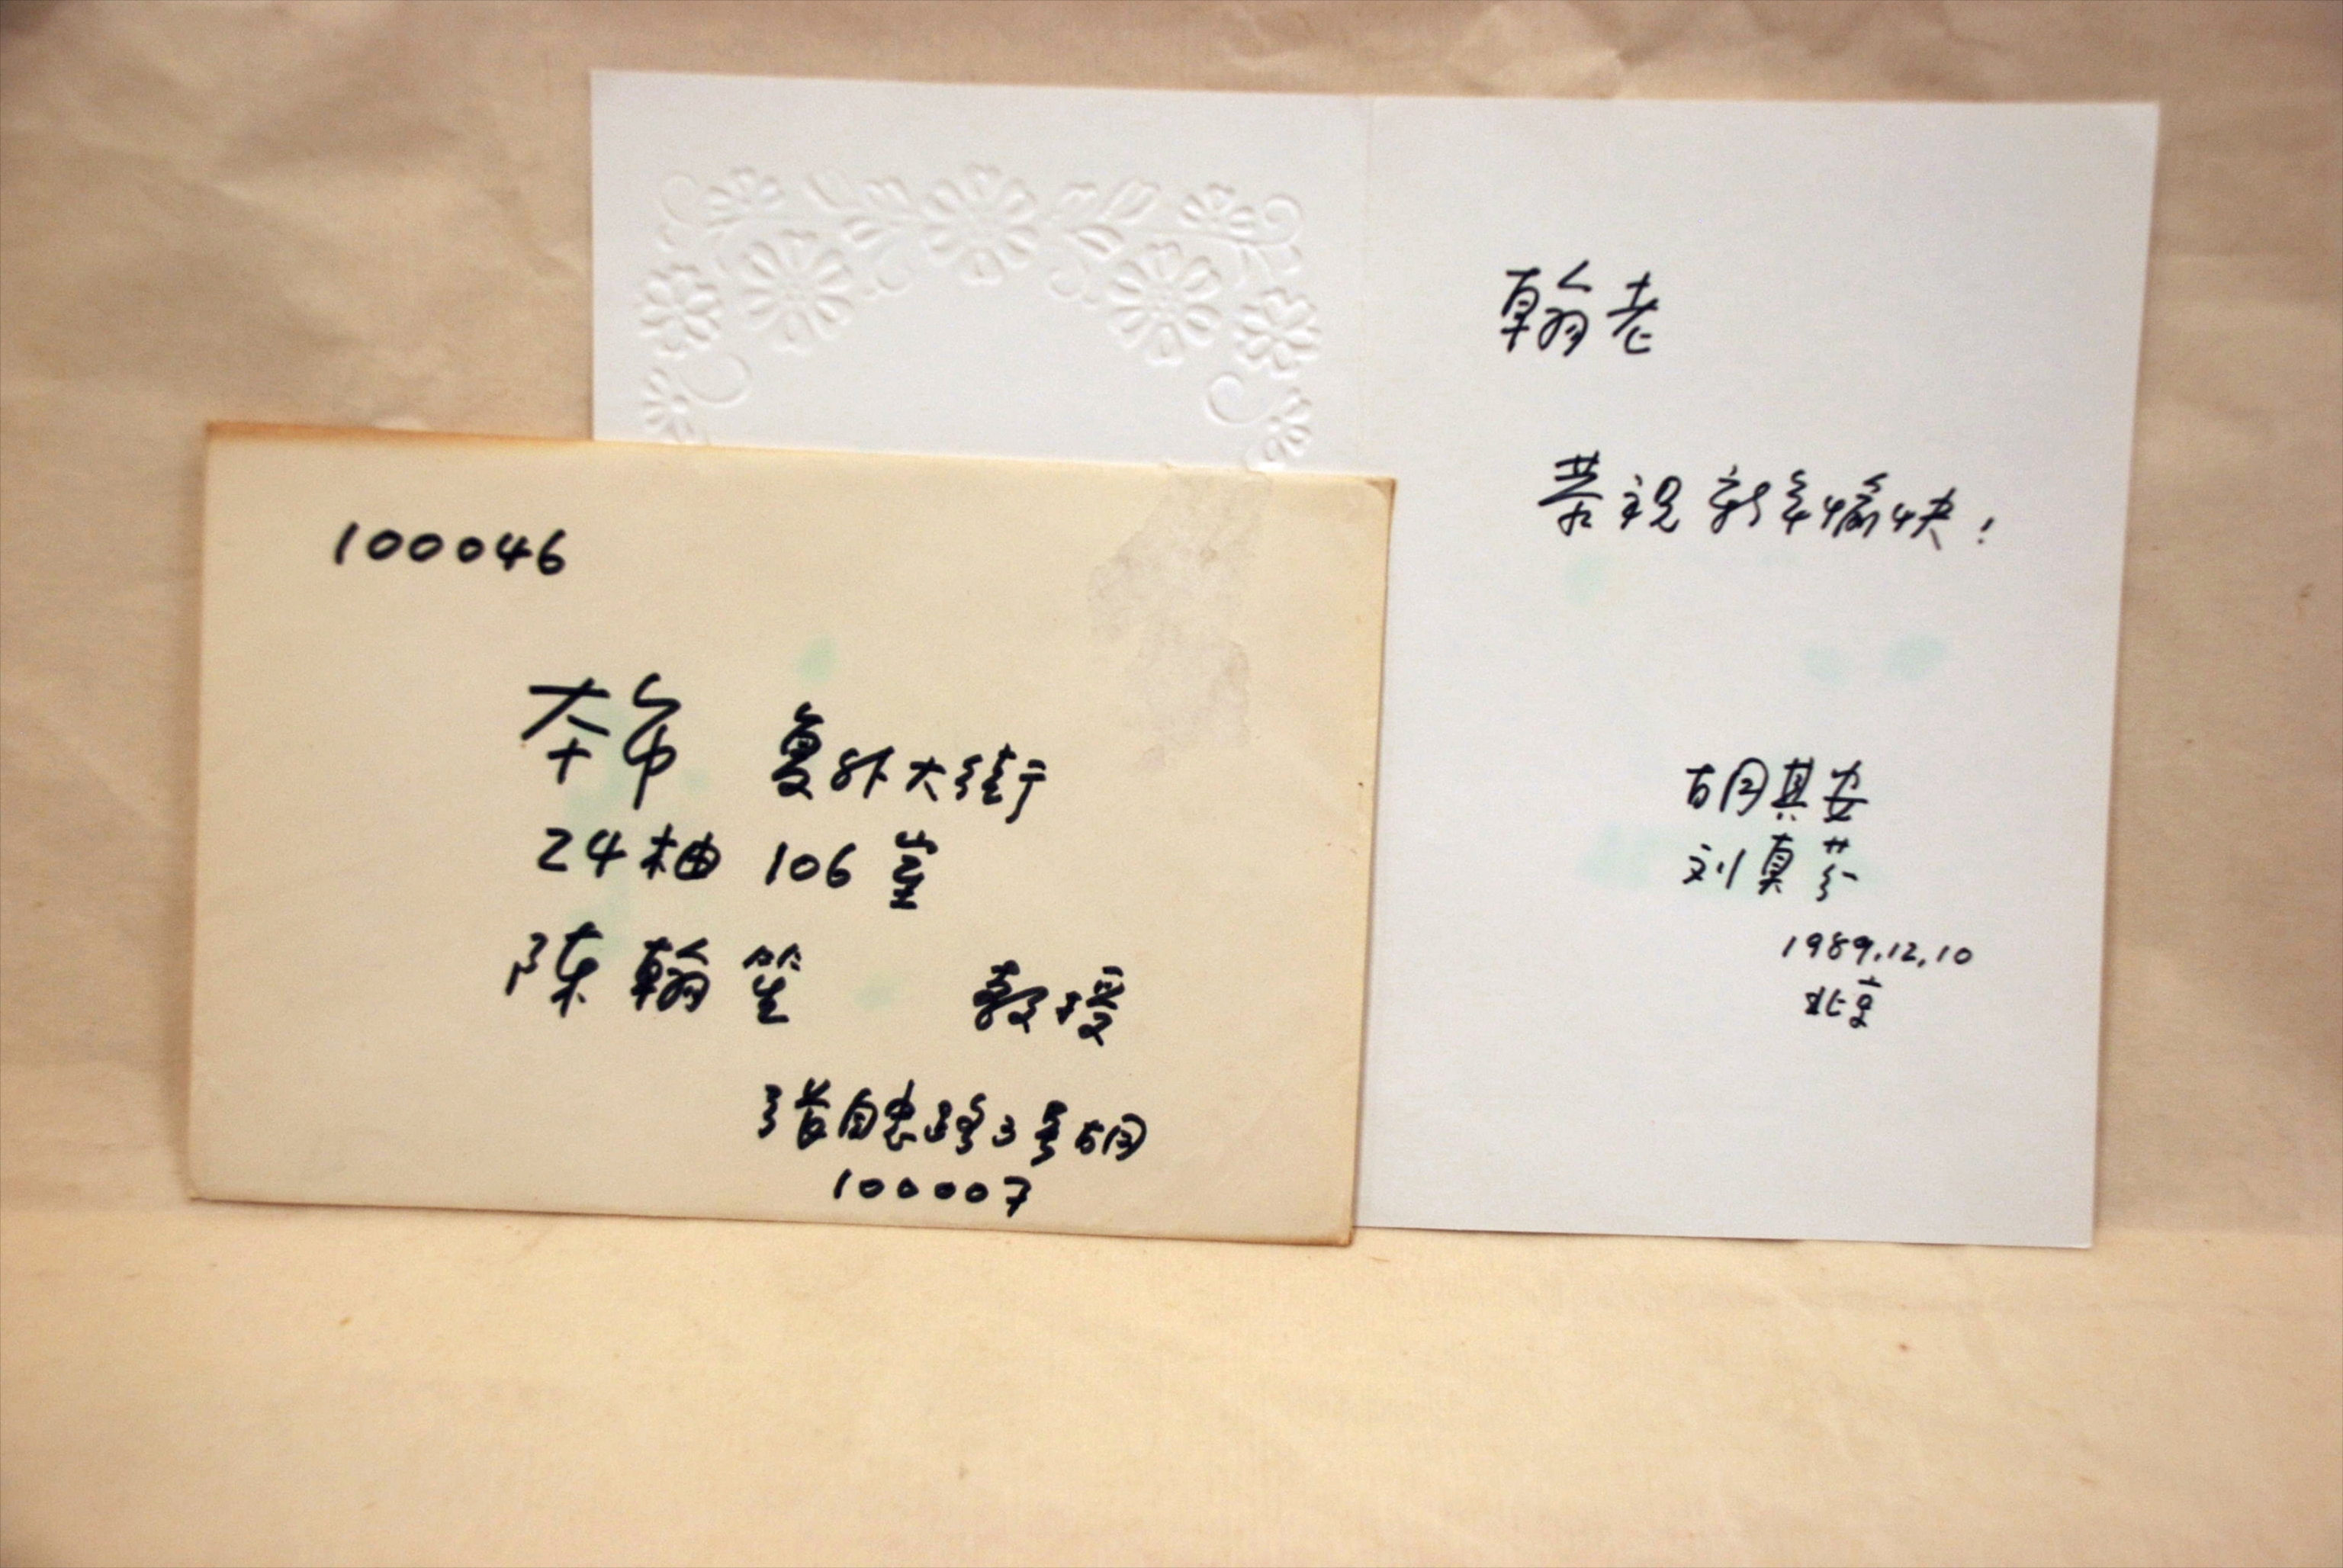 100046
本市 复外大街
24楼 106室
陈翰笙 教授
张自忠路3号胡
100007
翰老
恭祝新年愉快!
胡其安
刘真
1989.12.10
北京